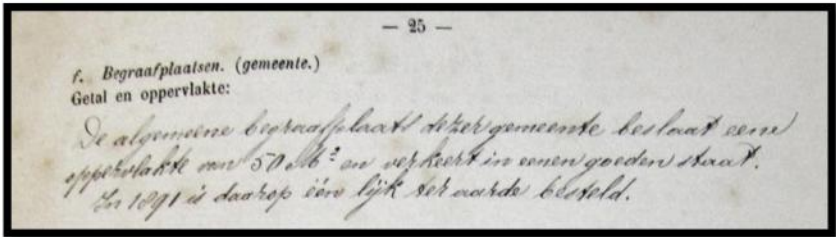 — 25 —
f. Begraafplaatsen. (gemeente.)
Getal en oppervlakte:
De algemeene begraafplaats dezer gemeente beslaat eene
oppervlakte van 50 M² en verkeert in eenen goeden staat.
In 1891 is daarop één lijk ter aarde besteld.